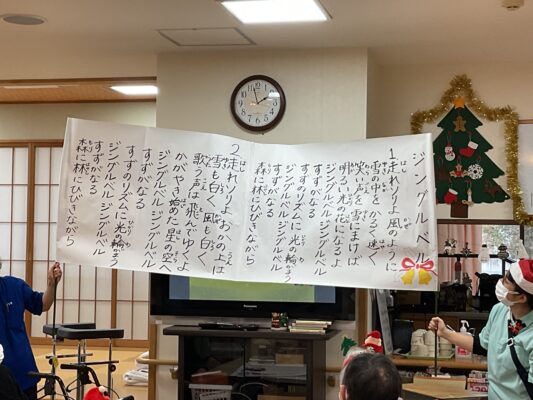 ジングルベル
1走れソリよ 風のように
雪の中を かるく速く
笑い声を 雪にまけば
明るい光の 花になるよ
ジングルベル ジングルベル
すずがなる
すずのリズムに光の輪がまう
ジングルベル ジングルベル
すずがなる
森に林にひびきながら
2走れソリよ おかの上は
雪も白く 風も白く
歌う声は 飛んでゆくよ
かがやき始めた 星の空へ
ジングルベル ジングルベル
すずがなる
すずのリズムに光の輪がまう
ジングルベル ジングルベル
すずがなる
森に林にひびきながら
Panasonic